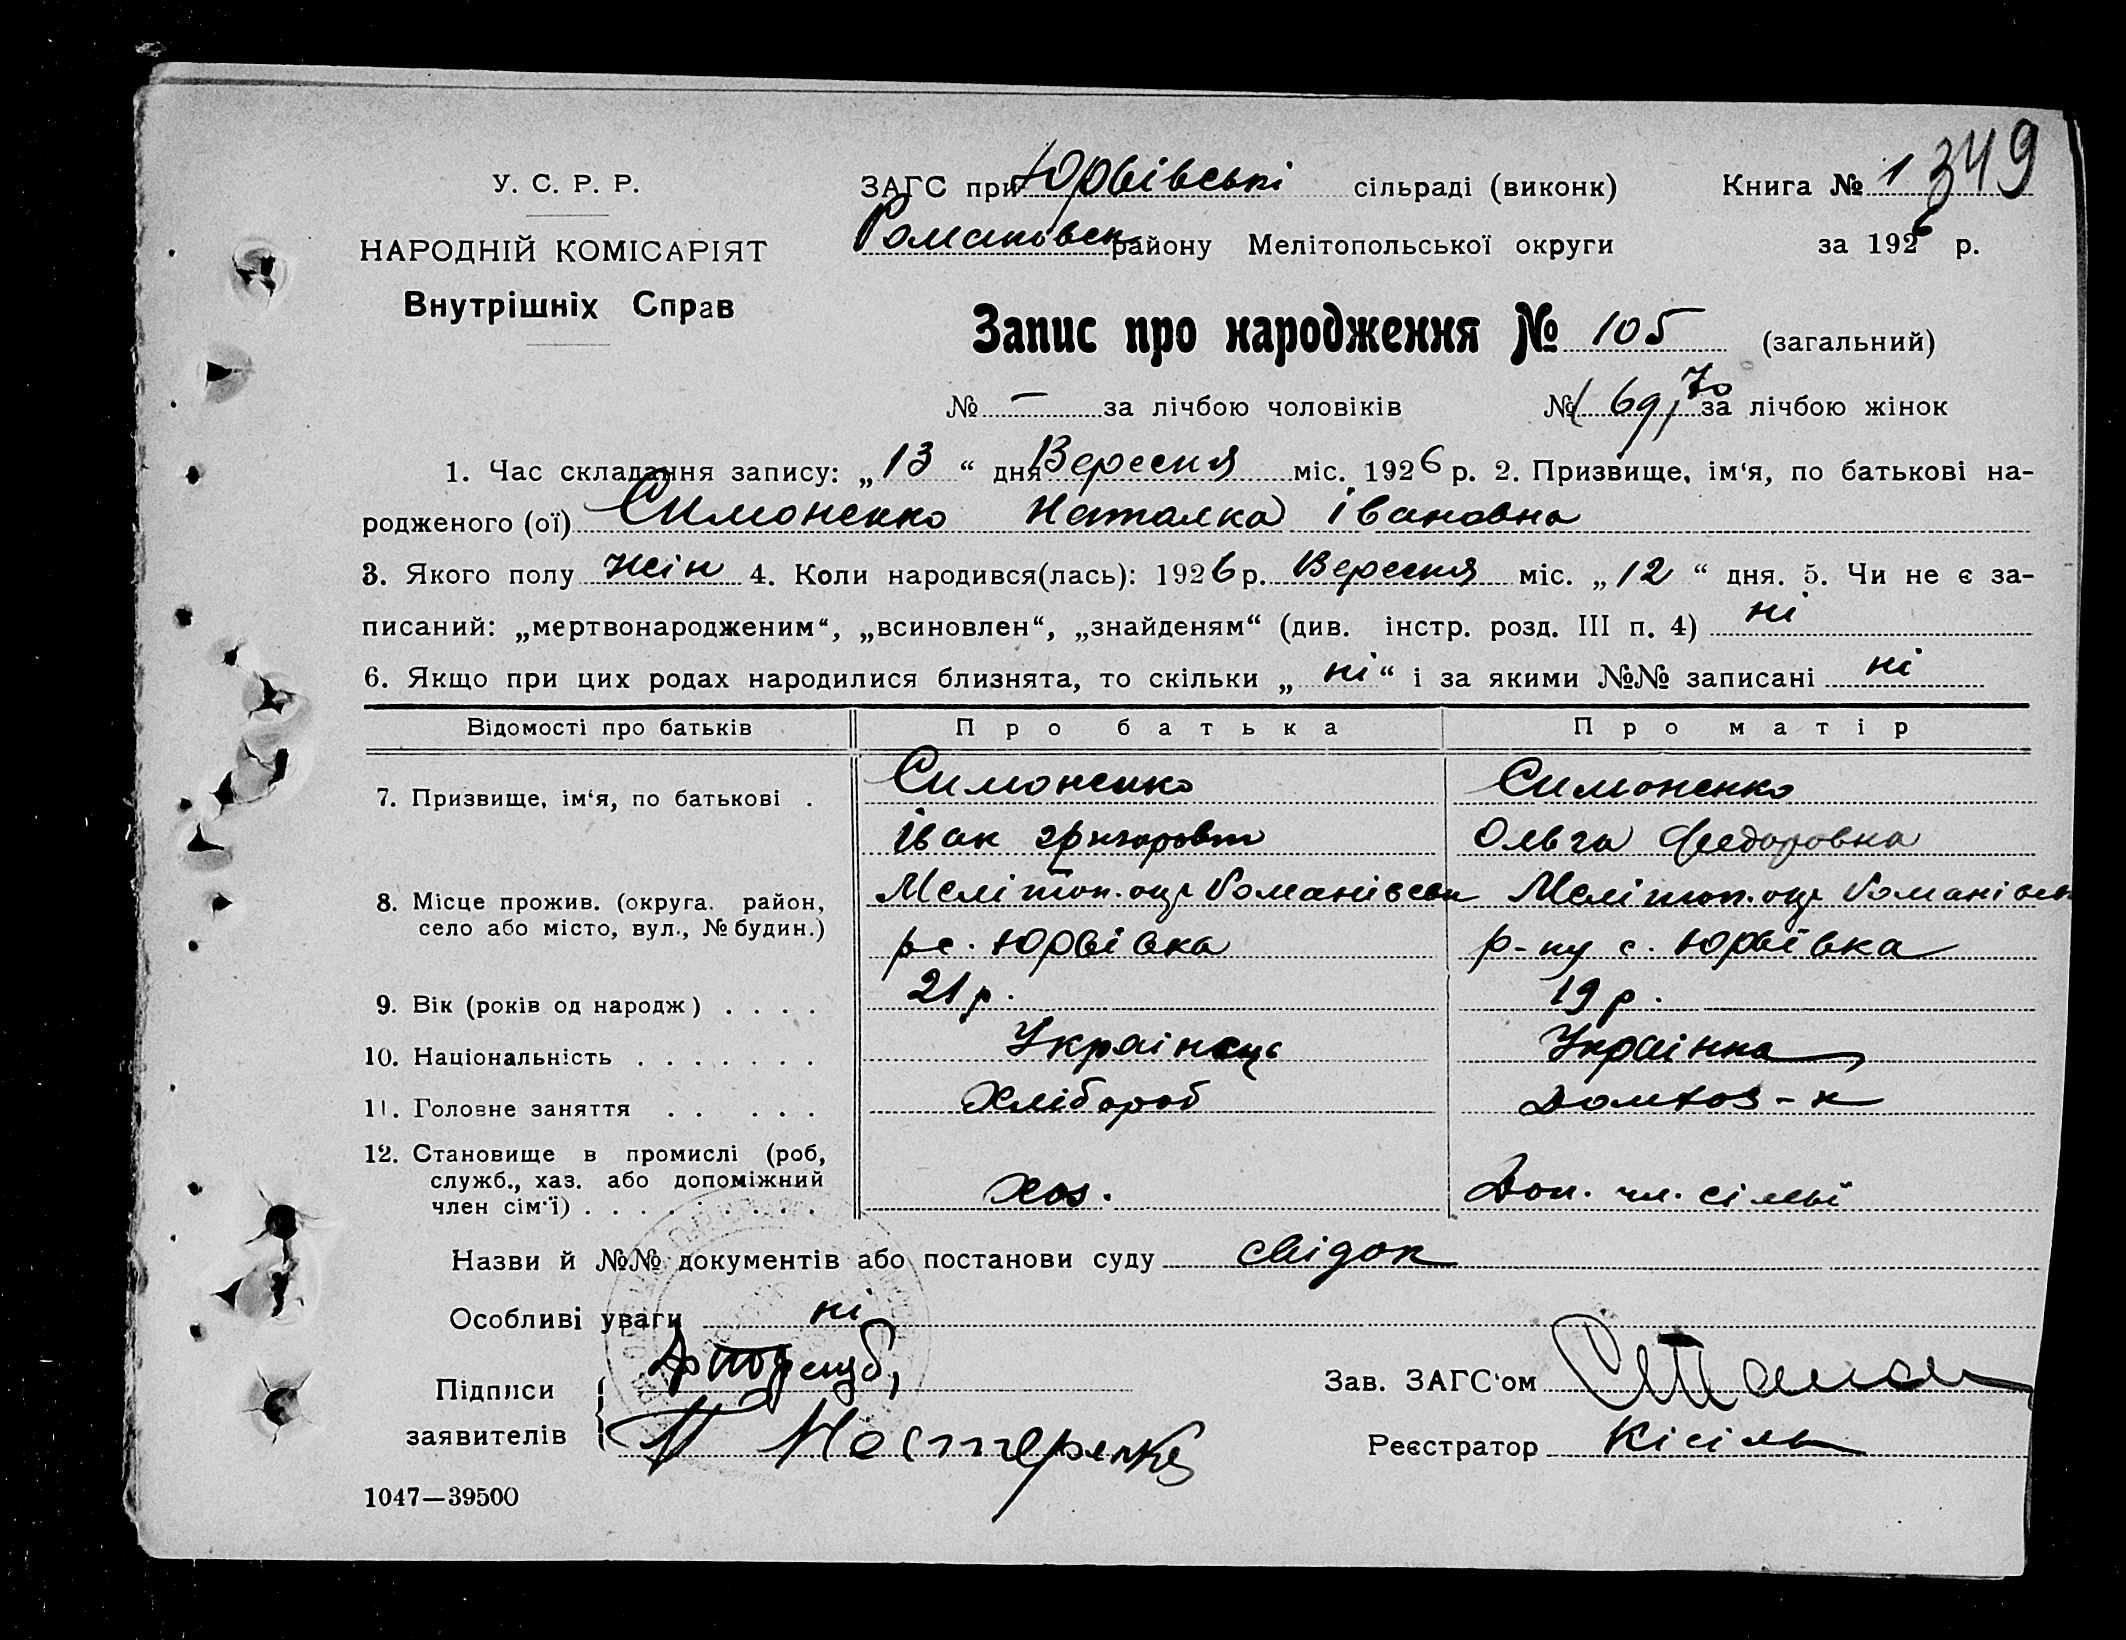 349
У. С. Р. Р.
ЗАГС при Юрвівські сільраді (виконк) Книга № 1
НАРОДНІЙ КОМІСАРІЯТ
Романовск району Мелітопольської округи за 1926 р.
Внутрішніх Справ
Запис про народження № 105 (загальний)
№ — за лічбою чоловіків № (69) 70 за лічбою жінок
1. Час складання запису: „ 13 “ дня Вересня міс. 1926 р. 2. Призвище, ім‘я, по батькові на-
родженого (ої) Симоненко Наталка Івановна
3. Якого полу жін 4. Коли народився(лась): 1926 р. Вересня міс. „ 12 “ дня. 5. Чи не є за-
писаний: „мертвонародженим“, „всиновлен“, „знайденям“ (див. інстр. розд. III п. 4) ні
6. Якщо при цих родах народилися близнята, то скільки „ ні “ і за якими №№ записані ні
Відомості про батьків Про батька Про матір
7. Призвище, ім‘я, по батькові . Симоненко Симоненко
Іван Григоровт Ольга Федоровна
8. Місце прожив. (округа. район, Мелітоп. окр Романівськ Мелітоп. окр Романівск
село або місто, вул., № будин.) р с. Юрвівка р-ну с. Юрвівка
9. Вік (років од народж) . . . . 21 р. 19 р.
10. Національність . . . . . . . Українець Українка
11. Головне заняття . . . . . Хлібороб Домхоз-к
12. Становище в промислі (роб,
служб., хаз. або допоміжний
член сім‘ї) . . . . . . . . . Хоз. Доп. чл. сімьї
Назви й №№ документів або постанови суду свідок
Особливі уваги ні
Підписи
Зав. ЗАГС‘ом
заявителів
Реєстратор Кісіль
1047—39500